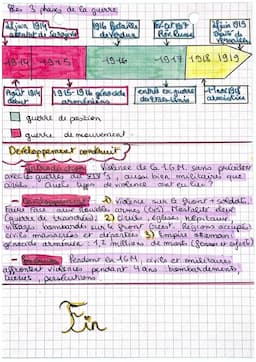 Les 3 phases de la guerre
28 juin 1914 attentat de Sarajevo
1916 bataille de Verdun
Fev-Oct 1917 Rev. Russe
28 juin 1919 Traité de Versailles
1914 1915 1916 1917 1918 1919
Août 1914 début
1915-1916 génocide arménien
entrée en guerre des États-Unis
11 nov 1918 armistice
guerre de position
guerre de mouvement
Développement construit
- Introduction : Violence de la 1GM sans précédent
avec la guerre du
aussi bien militaires que
civils. Quels types de violence ont eu lieu ?
- Développement : 1) Violence sur le front → soldats
faire face aux
(guerre de tranchées) 2)
églises, hôpitaux,
villages bombardés sur le front Ouest. Régions occupées
civils massacrés et déportés 3) Empire ottoman :
génocide arménien : 1,2 millions de morts (femmes et enfants)
- Pendant la 1GM, civils et militaires
affrontent violences pendant 4 ans bombardements,
tueries, persécutions
Fin